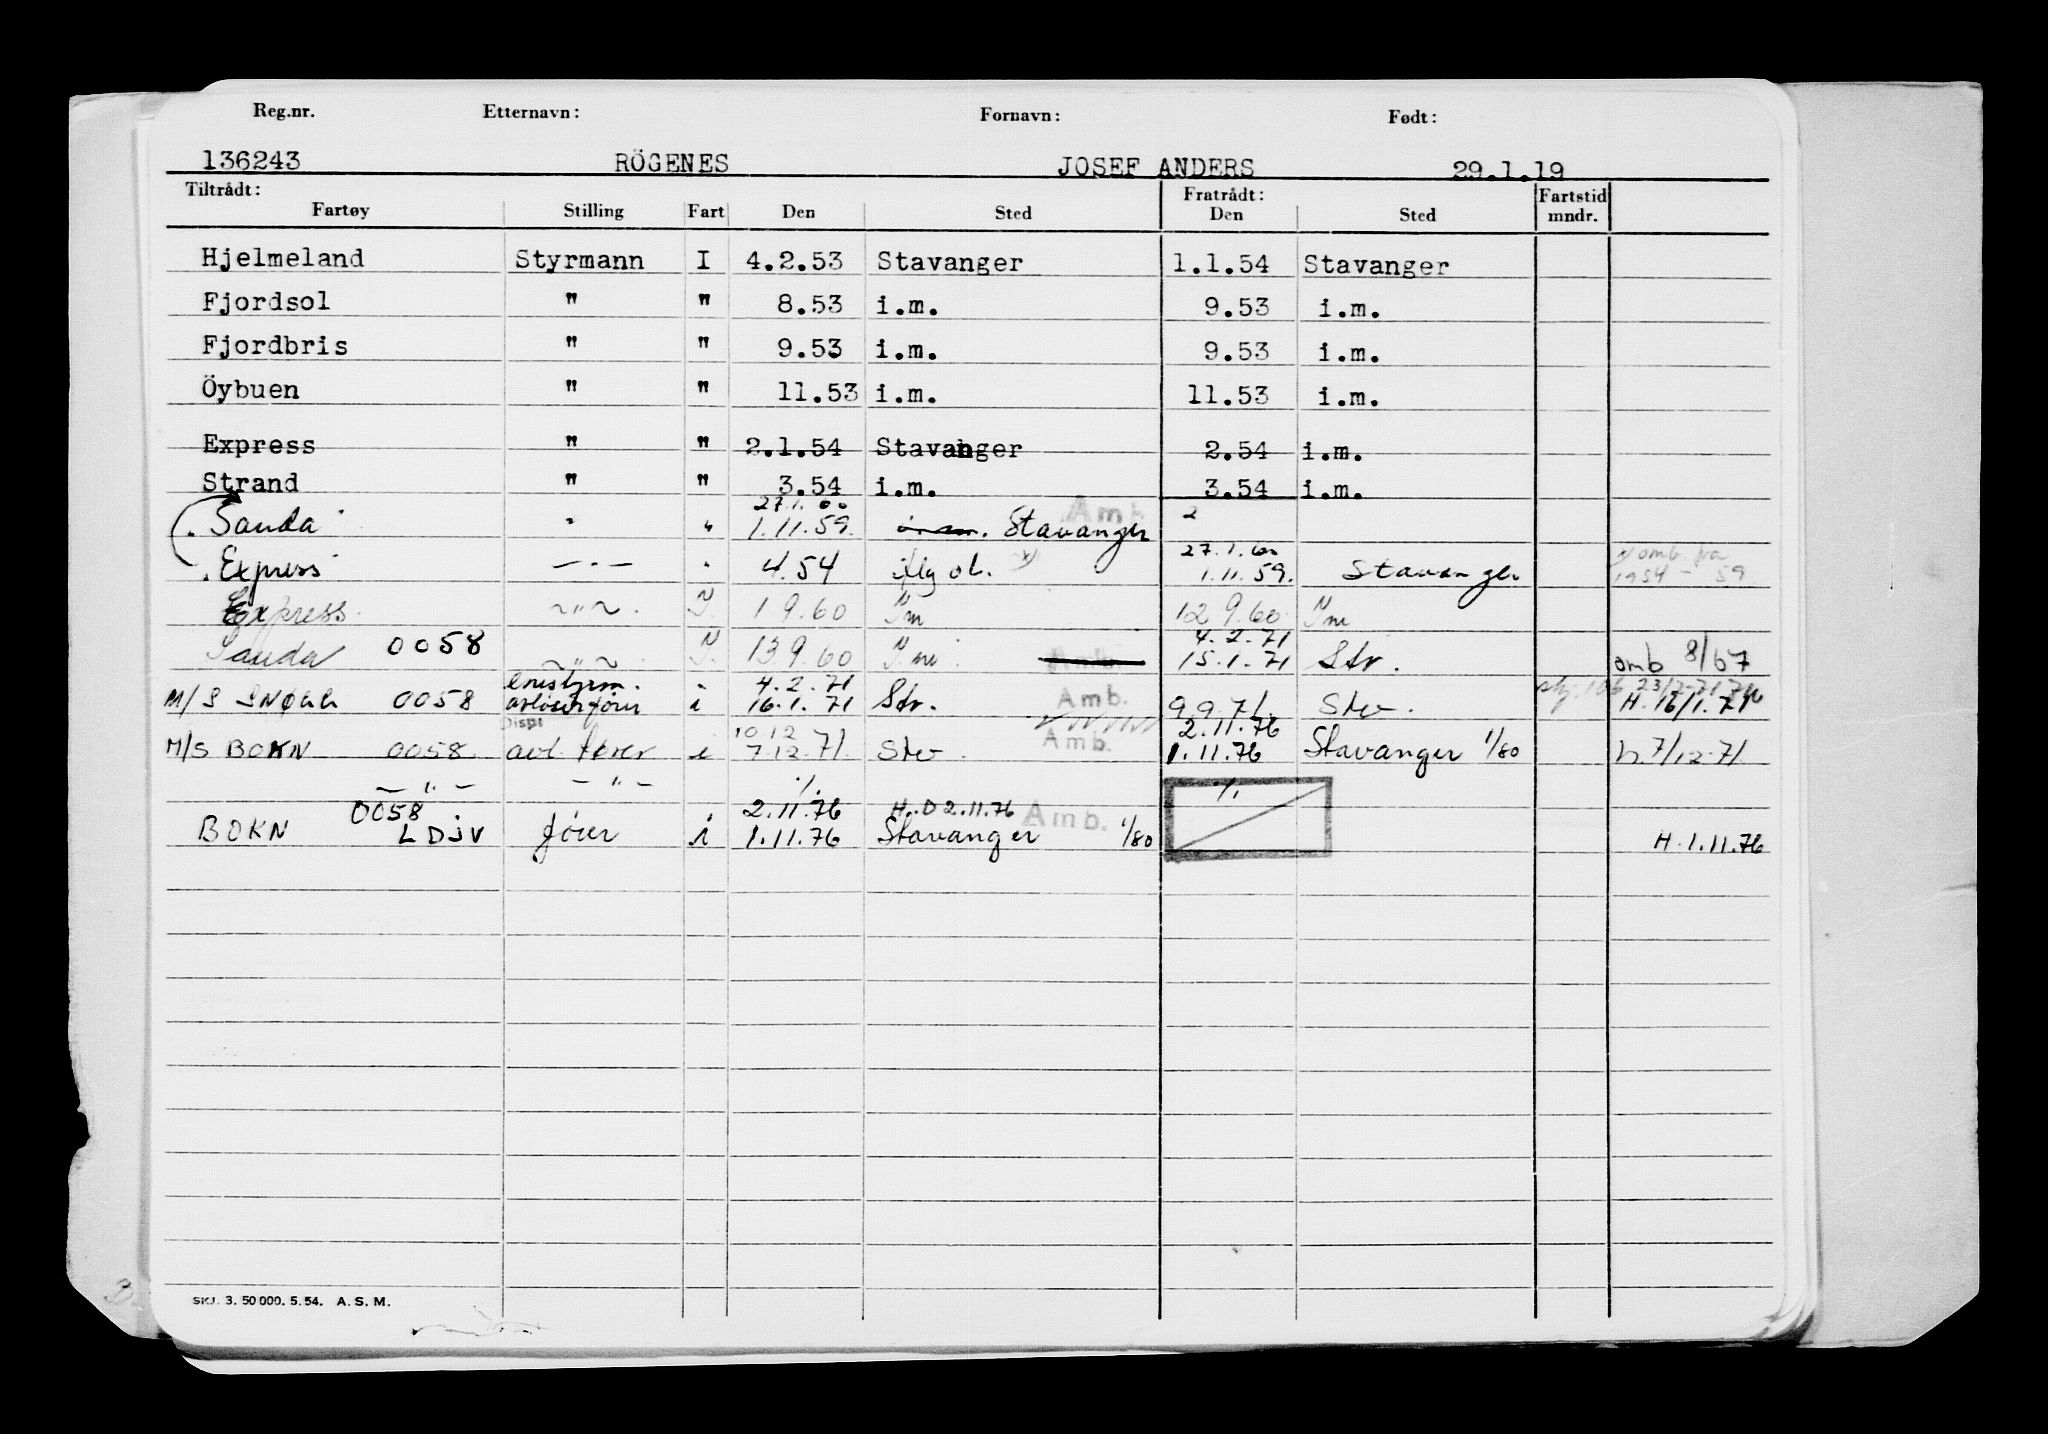 Reg.nr. Etternavn: Fornavn: Født:
136243 RÖGENES JOSEF ANDERS 29.1.19
Tiltrådt: Fratrådt: Fartstid
Fartøy Stilling Fart Den Sted Den Sted mndr.
Hjelmeland Styrmann I 4.2.53 Stavanger 1.1.54 Stavanger
Fjordsol " " 8.53 i.m. 9.53 i.m.
Fjordbris " " 9.53 i.m. 9.53 i.m.
Öybuen " " 11.53 i.m. 11.53 i.m.
Express " " 2.1.54 Stavanger 2.54 i.m.
Strand " " 3.54 i.m. 3.54 i.m.
27.1.60 Amb 2
Sauda " " 1.11.59. Stavanger
27.1.60 x) omb. fra
Express — " — " 4.54 iflg ol. x) 1.11.59. Stavanger 1954 - 59
Express. ~ " ~ . I. 1 9.60 Im 12 9.60 Im
4.2.71
Sauda 0058 ~ " ~ I. 13.9.60 I m. 15.1.71 Str. omb 8/67
enestyrm. 4.2.71 Amb. 23/2-71
M/S SNØGG 0058 avløserfører i 16.1.71 Str. 9.9.71. Stv. H. 16/1.71
Disp 10.12 2.11.76
M/S BOKN 0058 avl. fører i 7.12.71. Stv. Amb. 1.11.76 Stavanger 1/80 h. 7/12-71
— " — — " — ./. ./.
0058 2.11.76 H.D 2.11.76 Amb.
BOKN LDJV fører i 1.11.76 Stavanger 1/80 H. 1.11.76
SKJ. 3. 50 000. 5. 54. A. S. M.